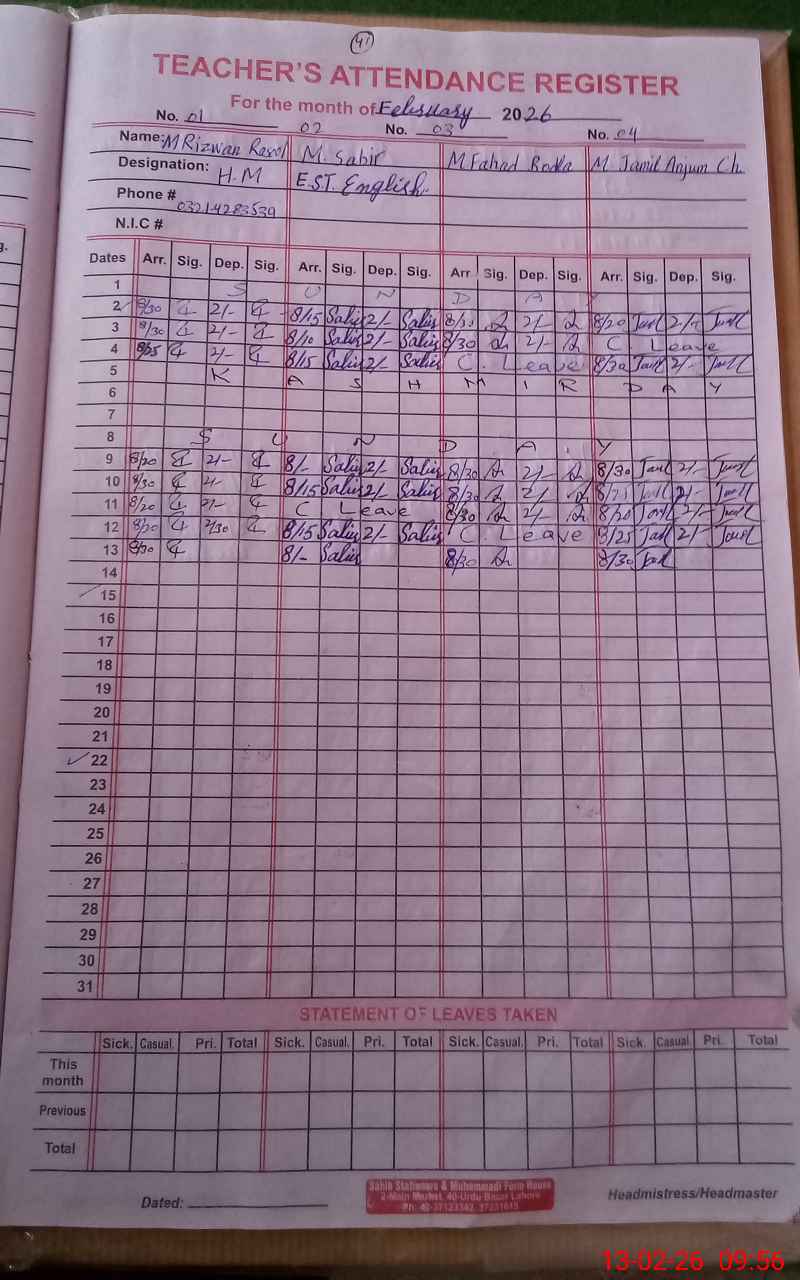 41
TEACHER'S ATTENDANCE REGISTER
For the month of February 2026
No. 01 02 No. 03 No. 04
Name: M Rizwan Rasol M. Sabir M. Fahad M. Jamil Anjum Ch.
Designation: H.M E.S.T. English
Phone # 03214283539
N.I.C #
Dates Arr. Sig. Dep. Sig. Arr. Sig. Dep. Sig. Arr. Sig. Dep. Sig. Arr. Sig. Dep. Sig.
1 S U N D A Y
2 8/30 2/- 8/15 Sabir 2/- Sabir 8/30 2/- 8/20 2/-
3 8/30 2/- 8/10 Sabir 2/- Sabir 8/30 2/- C. Leave
4 8/25 2/- 8/15 Sabir 2/- Sabir C. Leave 8/30 2/-
5 K A S H M I R D A Y
6
7
8 S U N D A Y
9 8/20 2/- 8/- Sabir 2/- Sabir 8/30 2/- 8/30 2/-
10 8/30 2/- 8/15 Sabir 2/- Sabir 8/30 2/- 8/25 2/-
11 8/20 2/- C Leave 8/30 2/- 8/20 2/-
12 8/20 2/30 8/15 Sabir 2/- Sabir C. Leave 8/25 2/-
13 8/30 8/- Sabir 8/30 8/30
14
15
16
17
18
19
20
21
22
23
24
25
26
27
28
29
30
31
STATEMENT OF LEAVES TAKEN
Sick. Casual. Pri. Total Sick. Casual. Pri. Total Sick. Casual. Pri. Total Sick. Casual. Pri. Total
This month
Previous
Total
Dated:
Sahib Stationers & Muhammadi Form House
2-Main Market, 40-Urdu Bazar Lahore
Headmistress/Headmaster
13-02-26 09:56